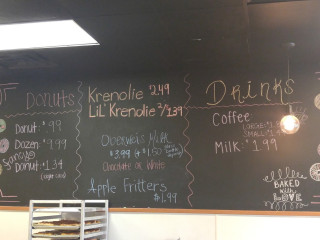 Donuts
Donut: $.99
Dozen $9.99
Donut: $1.34
Krenolie $2.49
LiL' Krenolie 2/$1.39
Oberweis Milk
Chocolate or White
Apple Fritters
$1.99
Drinks
Coffee
Milk: $1.99
BAKED
with
LOVE